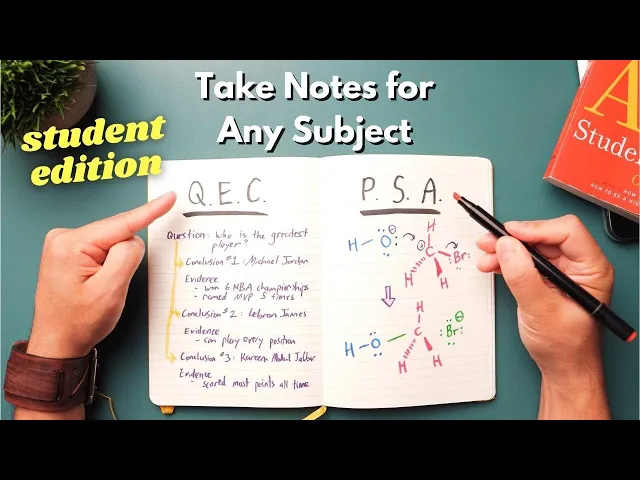 Take Notes for
Any Subject
student
edition
Q.E.C.
Question: Who is the greatest
player?
Conclusion #1: Michael Jordan
Evidence
- won 6 NBA championships
- named MVP 5 times
Conclusion #2: Lebron James
Evidence
- can play every position
Conclusion #3: Kareem Abdul Jabbar
Evidence
- scored most points all time
P. S. A.
H - O
H
C
Br
H
H
H
H - O - C
Br
H
H
A
Studen
HOW TO BE A HI